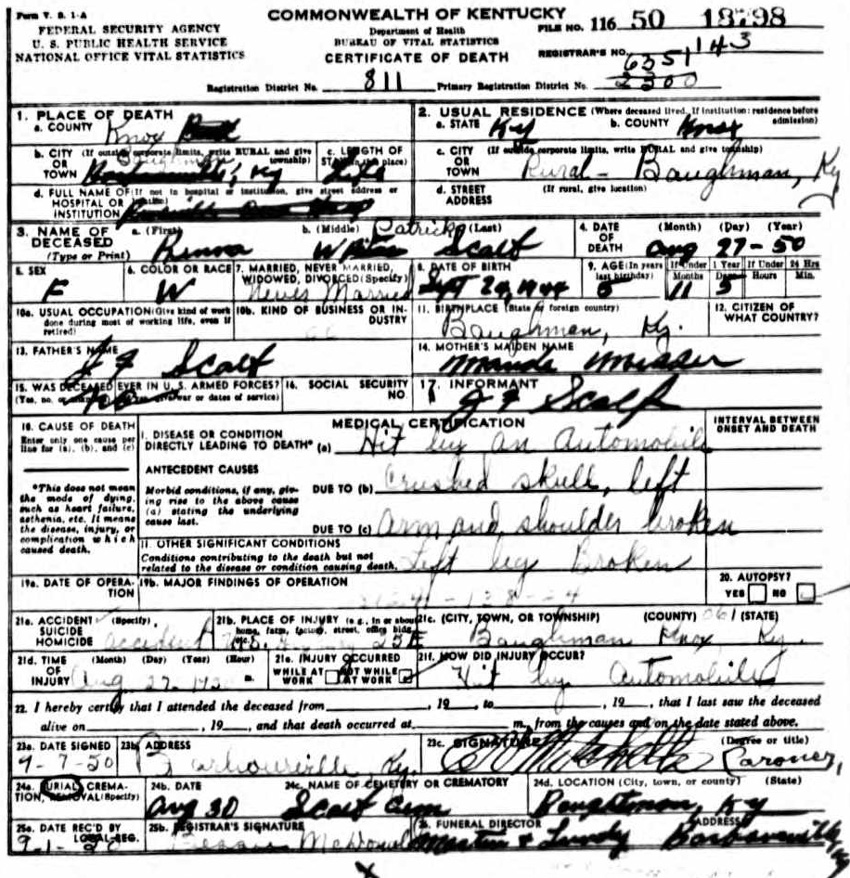 Form V. S. 1-A
COMMONWEALTH OF KENTUCKY
FILE NO. 116 50 18798
FEDERAL SECURITY AGENCY
U. S. PUBLIC HEALTH SERVICE
NATIONAL OFFICE VITAL STATISTICS
Department of Health
BUREAU OF VITAL STATISTICS
CERTIFICATE OF DEATH
REGISTRAR'S NO. 143
6351
Registration District No. 811 Primary Registration District No. 2300
1. PLACE OF DEATH
a. COUNTY Knox
2. USUAL RESIDENCE (Where deceased lived. If institution: residence before admission)
a. STATE Ky b. COUNTY Knox
b. CITY (If outside corporate limits, write RURAL and give township)
OR
TOWN Baughman
Barbourville, Ky
c. LENGTH OF STAY (in this place)
Life
c. CITY (If outside corporate limits, write RURAL and give township)
OR
TOWN Rural - Baughman, Ky
d. FULL NAME OF (If not in hospital or institution, give street address or location)
HOSPITAL OR
INSTITUTION
d. STREET (If rural, give location)
ADDRESS
3. NAME OF DECEASED
(Type or Print)
a. (First) b. (Middle) Patrick (Last)
Scalf
4. DATE OF DEATH (Month) (Day) (Year)
Aug 27-50
5. SEX
F
6. COLOR OR RACE
W
7. MARRIED, NEVER MARRIED, WIDOWED, DIVORCED (Specify)
Never Married
8. DATE OF BIRTH
Sept 24, 1944
9. AGE (In years last birthday) If Under 1 Year Months Days If Under 24 Hrs Hours Min.
5 11 5
10a. USUAL OCCUPATION (Give kind of work done during most of working life, even if retired)
10b. KIND OF BUSINESS OR INDUSTRY
11. BIRTHPLACE (State or foreign country)
Baughman, Ky.
12. CITIZEN OF WHAT COUNTRY?
13. FATHER'S NAME
J F Scalf
14. MOTHER'S MAIDEN NAME
Maude Messer
15. WAS DECEASED EVER IN U. S. ARMED FORCES?
(Yes, no, or unknown) (If yes, give war or dates of service)
No
16. SOCIAL SECURITY NO.
17. INFORMANT
J F Scalf
18. CAUSE OF DEATH
Enter only one cause per line for (a), (b), and (c)
MEDICAL CERTIFICATION
INTERVAL BETWEEN ONSET AND DEATH
I. DISEASE OR CONDITION
DIRECTLY LEADING TO DEATH* (a) Hit by an Automobile
*This does not mean the mode of dying, such as heart failure, asthenia, etc. It means the disease, injury, or complication which caused death.
ANTECEDENT CAUSES
Morbid conditions, if any, giving rise to the above cause (a) stating the underlying cause last.
DUE TO (b) Crushed skull, left
DUE TO (c) Arm and shoulder broken
II. OTHER SIGNIFICANT CONDITIONS
Conditions contributing to the death but not related to the disease or condition causing death.
Left leg Broken
19a. DATE OF OPERATION
19b. MAJOR FINDINGS OF OPERATION
20. AUTOPSY?
YES NO
21a. ACCIDENT (Specify)
SUICIDE
HOMICIDE
accident
21b. PLACE OF INJURY (e.g., in or about home, farm, factory, street, office bldg., etc.)
25E
21c. (CITY, TOWN, OR TOWNSHIP) (COUNTY) 061 (STATE)
Baughman Knox Ky.
21d. TIME OF INJURY (Month) (Day) (Year) (Hour) m.
Aug 27
21e. INJURY OCCURRED
WHILE AT WORK NOT WHILE AT WORK
21f. HOW DID INJURY OCCUR?
Hit by Automobile
22. I hereby certify that I attended the deceased from , 19 , to , 19 , that I last saw the deceased
alive on , 19 , and that death occurred at m., from the causes and on the date stated above.
23a. DATE SIGNED
9-7-50
23b. ADDRESS
Barbourville Ky.
23c. SIGNATURE (Degree or title)
Coroner,
24a. BURIAL, CREMATION, REMOVAL (Specify)
24b. DATE
Aug 30
24c. NAME OF CEMETERY OR CREMATORY
Scalf Cem
24d. LOCATION (City, town, or county) (State)
Baughman, Ky
25a. DATE REC'D BY LOCAL REG.
9-1-50
25b. REGISTRAR'S SIGNATURE
26. FUNERAL DIRECTOR ADDRESS
Martin & Lundy Barbourville, Ky